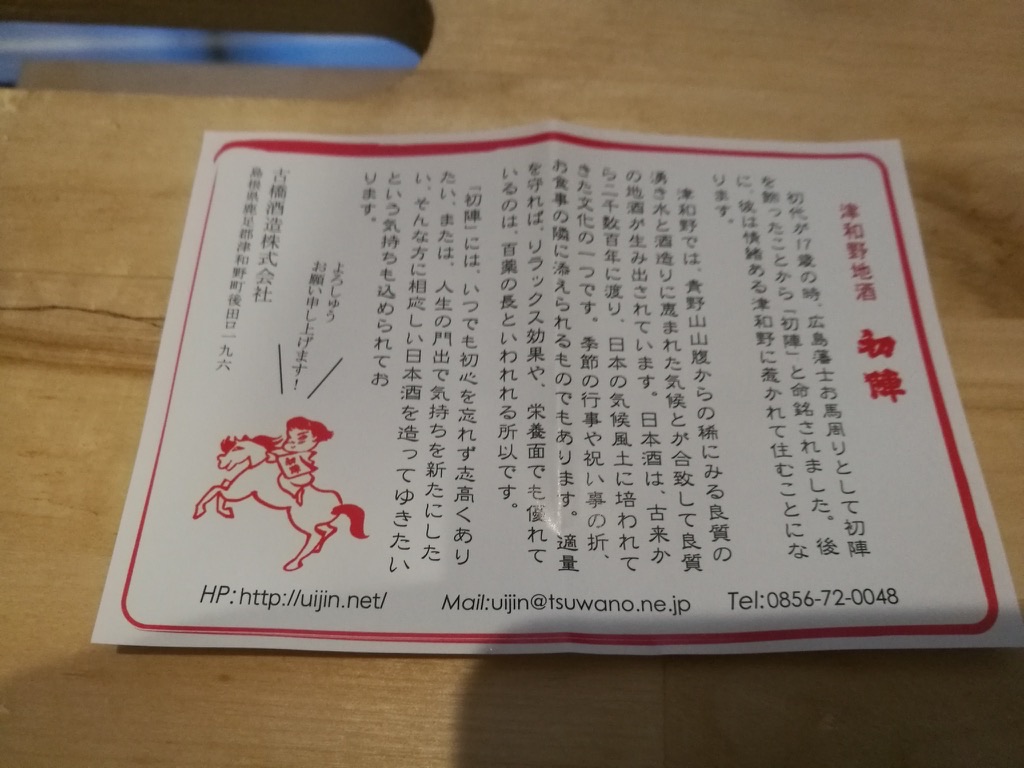 津和野地酒 初陣
初代が17歳の時、広島藩士お馬周りとして初陣
を飾ったことから「初陣」と命銘されました。後
に、彼は情緒ある津和野に惹かれて住むことにな
ります。
津和野では、青野山山腹からの稀にみる良質の
湧き水と酒造りに恵まれた気候とが合致して良質
の地酒が生み出されています。日本酒は、古来か
ら二千数百年に渡り、日本の気候風土に培われて
きた文化の一つです。季節の行事や祝い事の折、
お食事の隣に添えられるものでもあります。適量
を守れば、リラックス効果や、栄養面でも優れて
いるのは、百薬の長といわれる所以です。
「初陣」には、いつでも初心を忘れず志高くあり
たい、または、人生の門出で気持ちを新たにした
い、そんな方に相応しい日本酒を造ってゆきたい
という気持ちも込められてお
ります。
よろしゅう
お願い申し上げます！
古橋酒造株式会社
島根県鹿足郡津和野町後田ロ一九六
初陣
HP:http://uijin.net/
Mail:uijin@tsuwano.ne.jp
Tel:0856-72-0048